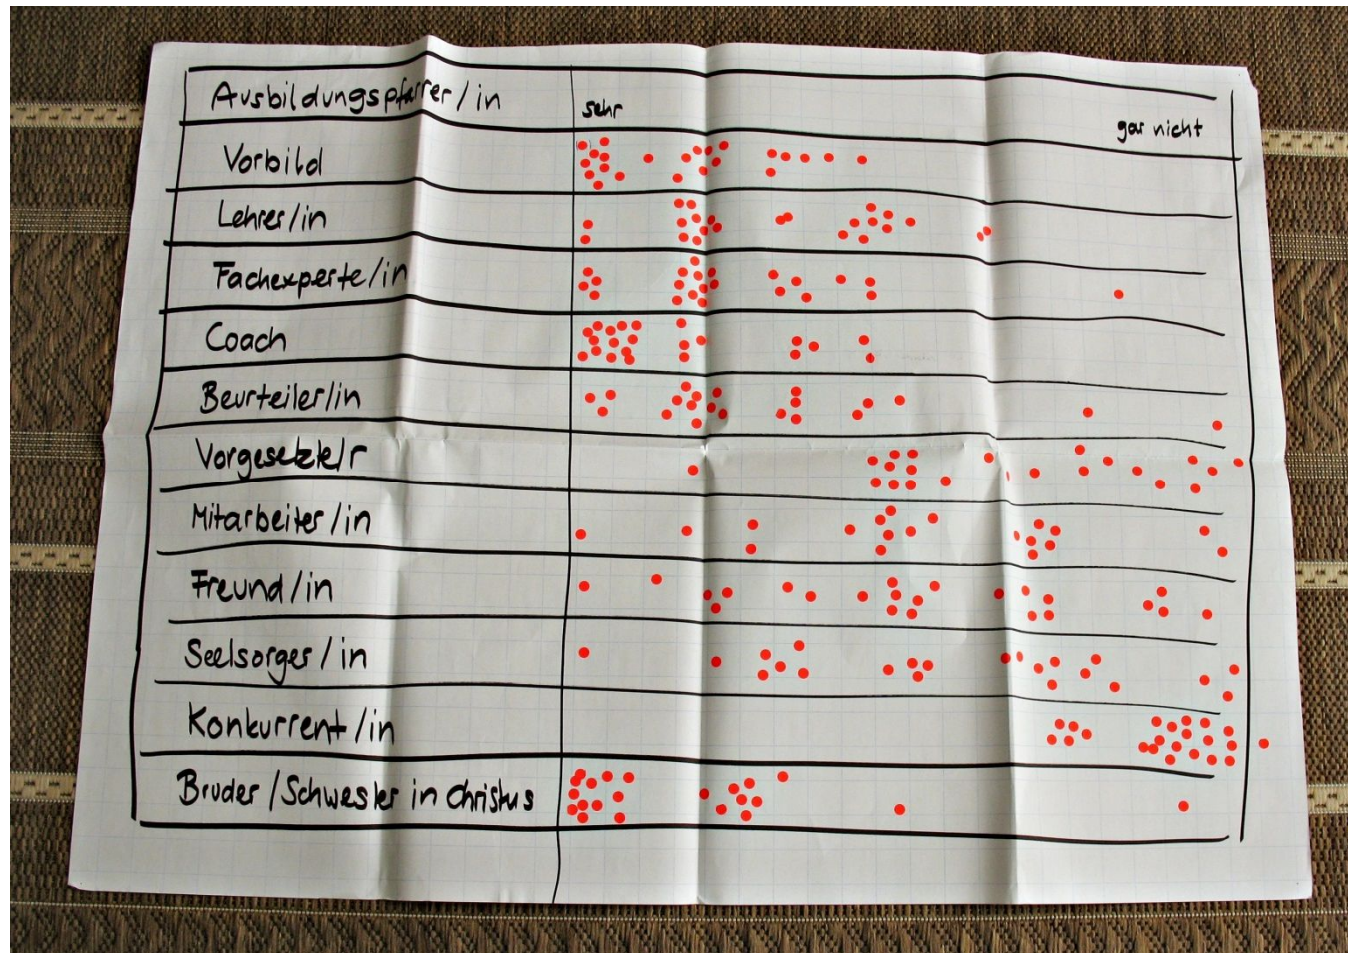 Ausbildungspfarrer/in
sehr
gar nicht
Vorbild
Lehrer/in
Fachexperte/in
Coach
Beurteiler/in
Vorgesetzte/r
Mitarbeiter/in
Freund/in
Seelsorger/in
Konkurrent/in
Bruder/Schwester in Christus